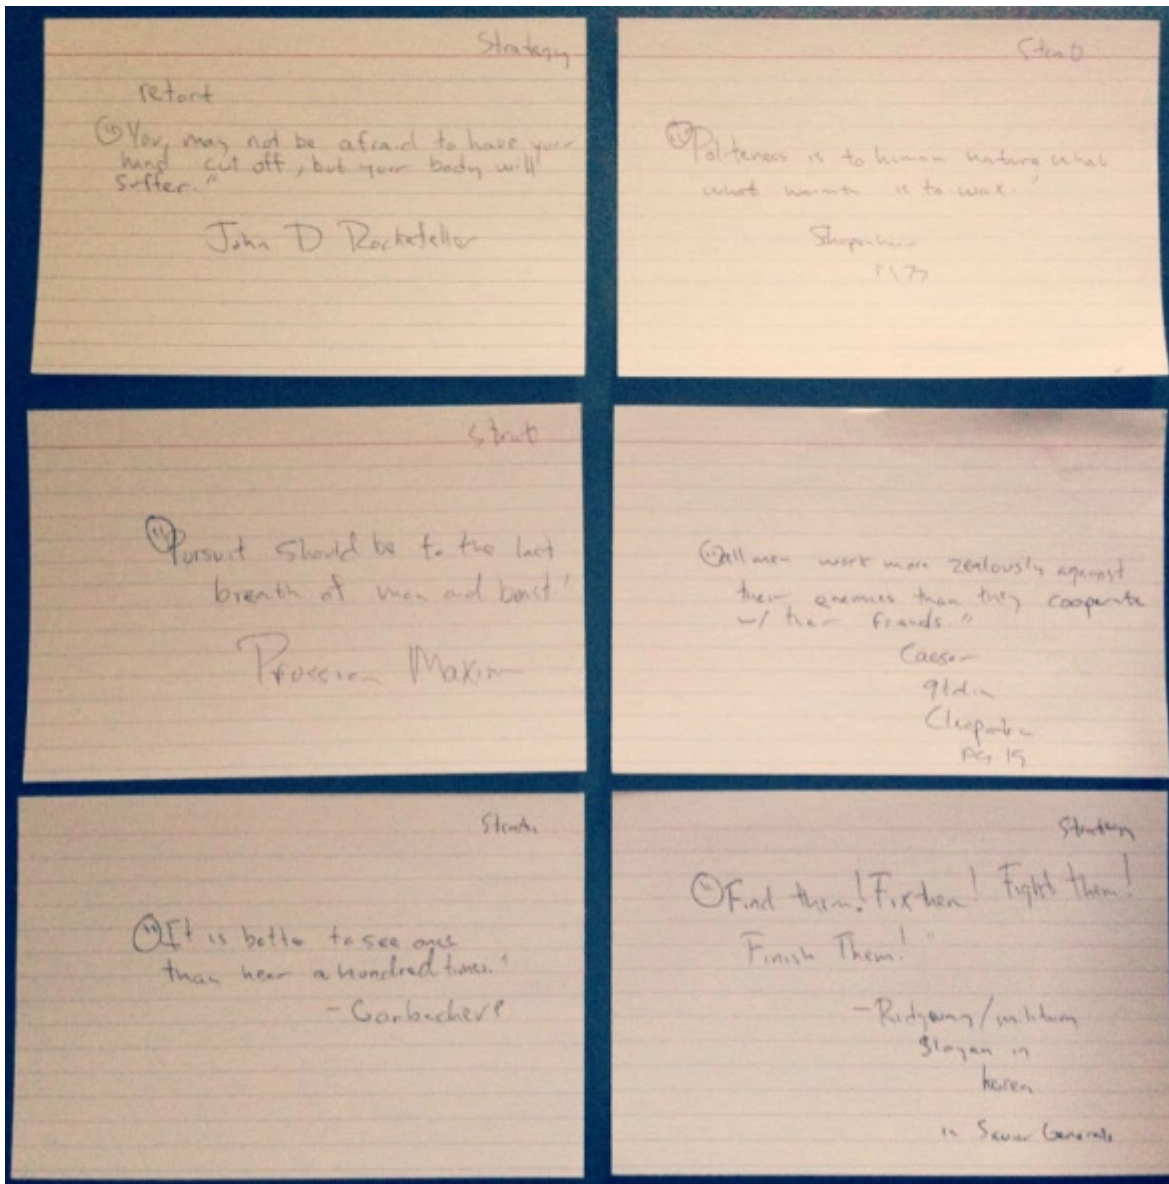 Strategy
retort
"You may not be afraid to have your
hand cut off, but your body will
suffer."
John D Rockefeller
Strat
"Politeness is to human nature what
what warmth is to wax."
Schopenhauer
Strat
"Pursuit should be to the last
breath of man and beast"
Prussian Maxim
"all men work more zealously against
their enemies than they cooperate
w/ their friends."
Caesar
qtd in
Cleopatra
pg 19
"It is better to see once
than hear a hundred times."
- Gorbacheve
Strategy
"Find them! Fix them! Fight them!
Finish Them!"
- Ridgway/military
slogan in
korea
in Savior Generals